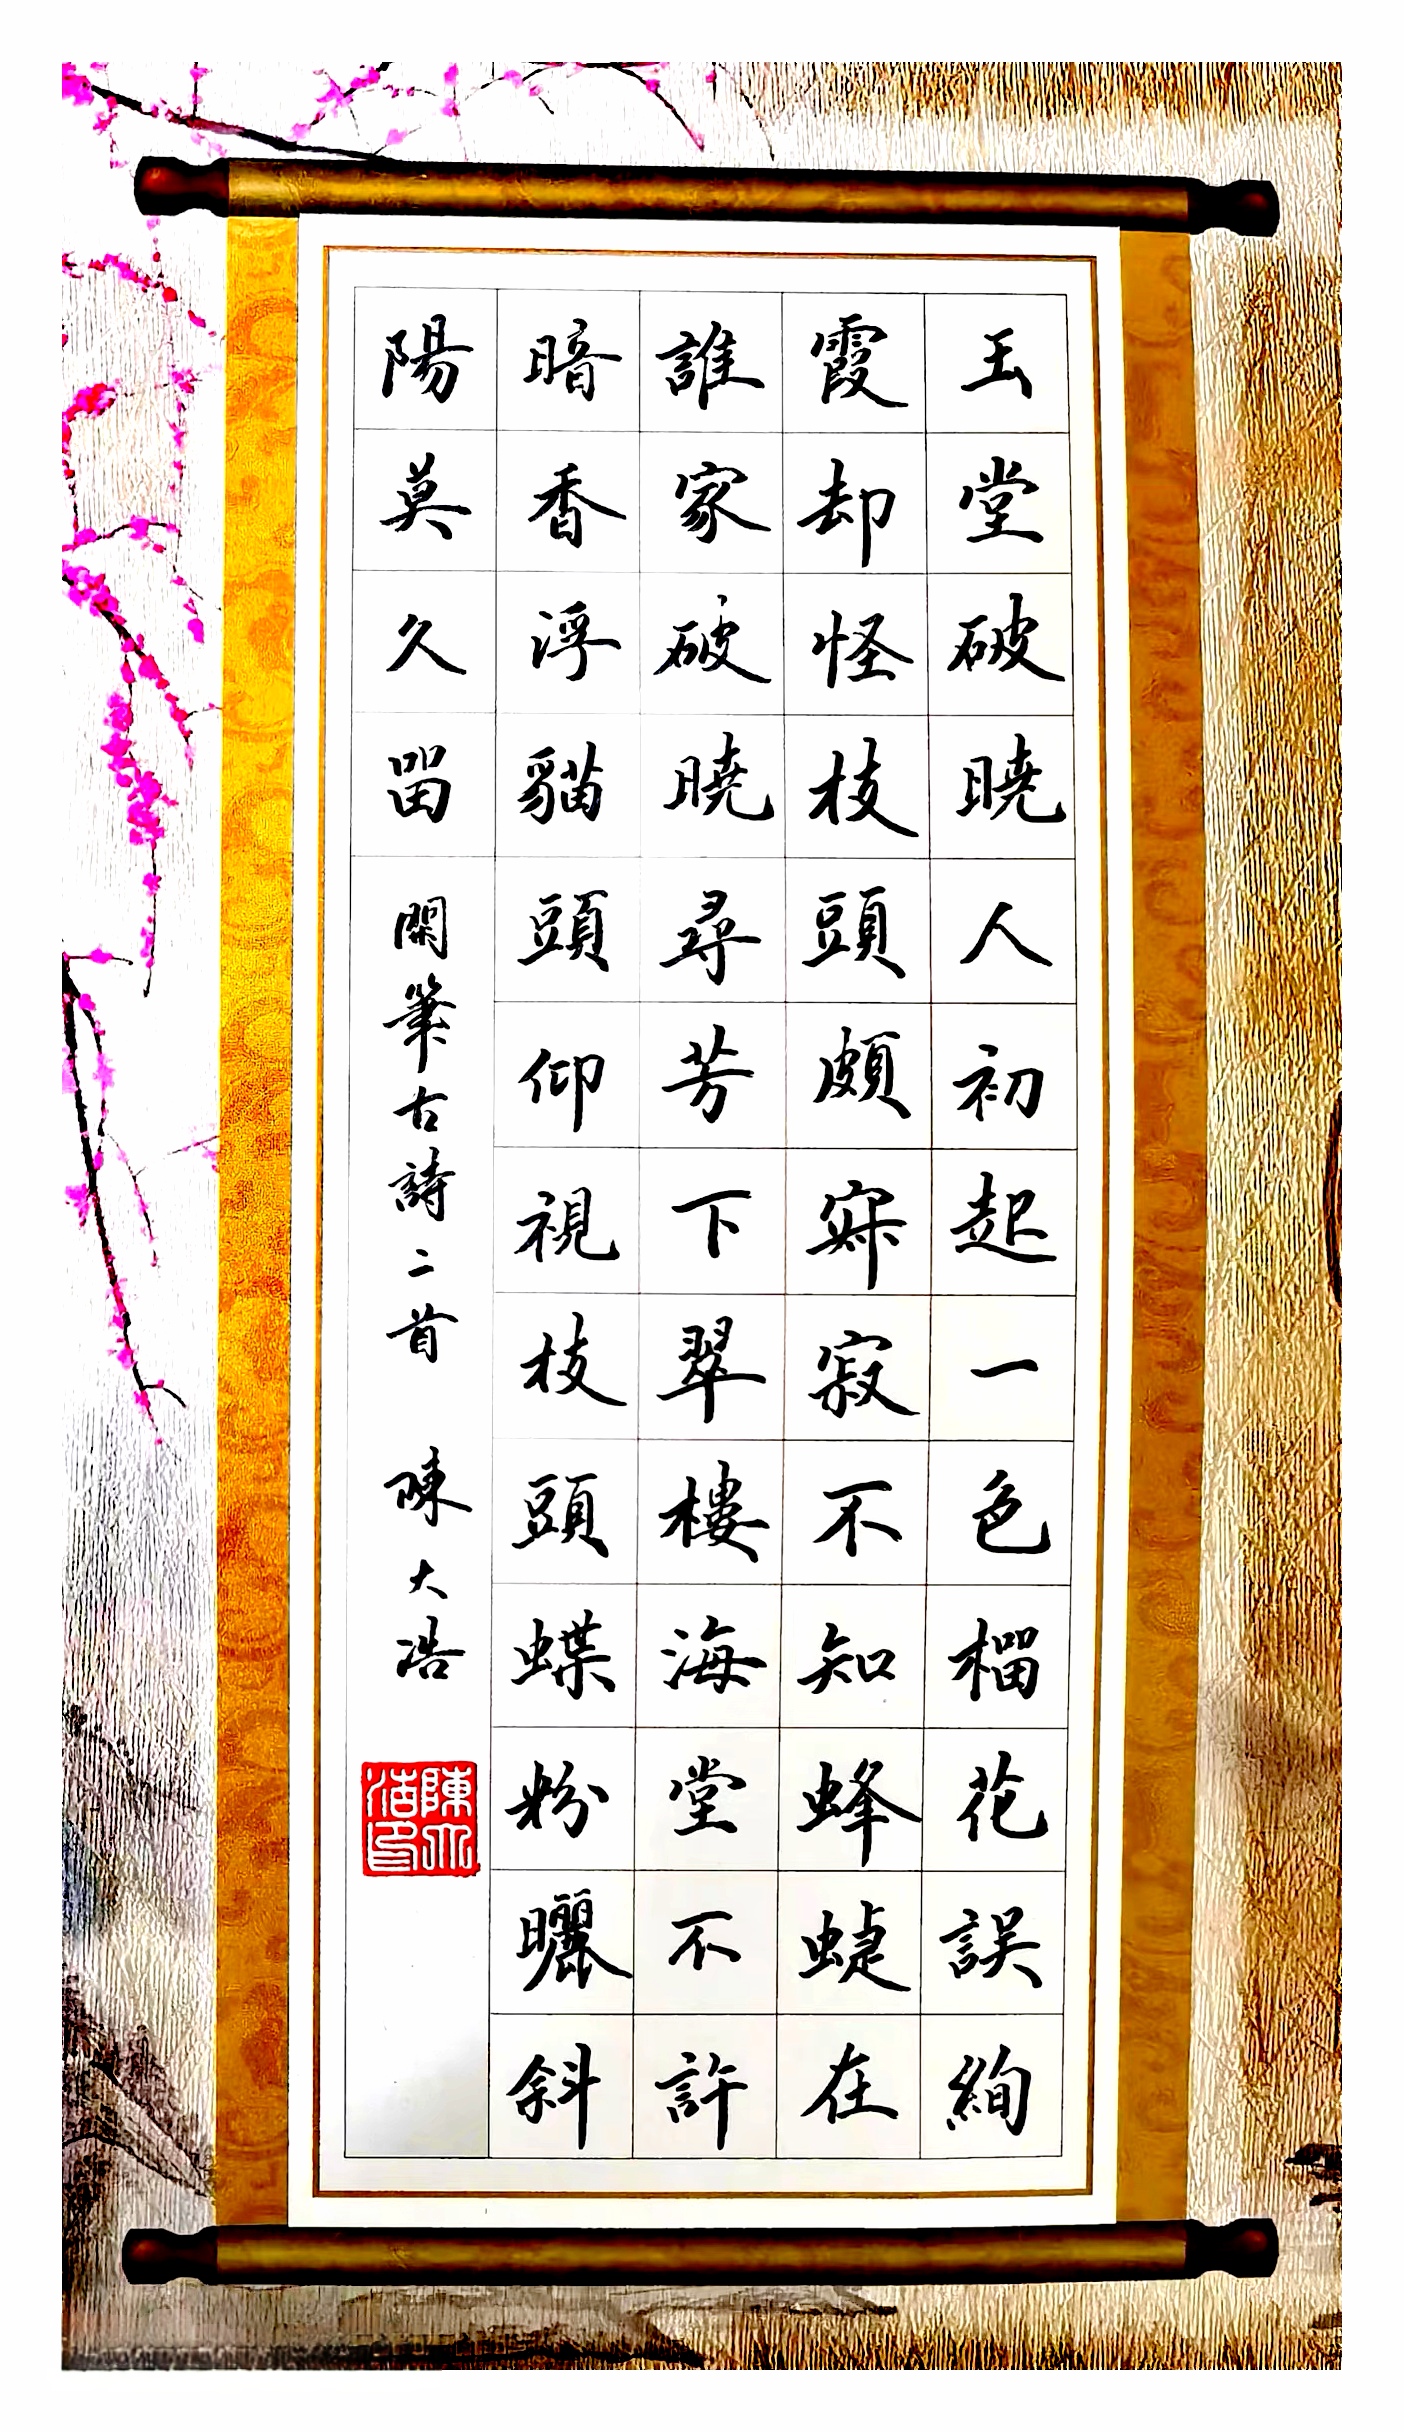 玉堂破曉人初起一色榴花誤絢
霞却怪枝頭頗寂寂不知蜂蜨在
誰家破曉尋芳下翠樓海堂不許
暗香浮貓頭仰視枝頭蝶粉曬斜
陽莫久留 閑筆古詩二首 陳大浩
陳大浩印